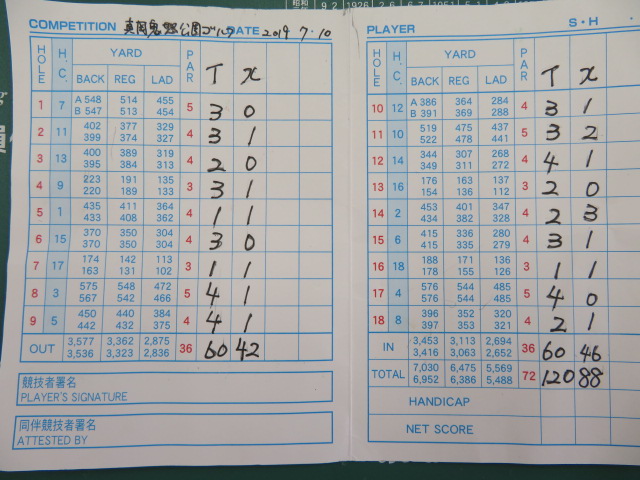 COMPETITION 真岡鬼怒公園ゴルフ DATE 2019 7・10
HOLE H.C. YARD PAR T x
BACK REG LAD
1 7 A 548 514 455 5 3 0
B 547 513 454
2 11 402 377 329 4 3 1
399 374 327
3 13 400 389 319 4 2 0
395 384 313
4 9 223 191 135 3 3 1
220 189 133
5 1 435 411 364 4 1 1
433 408 362
6 15 370 350 304 4 3 0
370 350 304
7 17 174 142 113 3 1 1
163 131 102
8 3 575 548 472 5 4 1
567 542 466
9 5 450 440 384 4 4 1
442 432 375
OUT 3,577 3,362 2,875 36 60 42
3,536 3,323 2,836
競技者署名
PLAYER'S SIGNATURE
同伴競技者署名
ATTESTED BY
PLAYER S・H
HOLE H.C. YARD PAR T x
BACK REG LAD
10 12 A 386 364 284 4 3 1
B 391 369 288
11 10 519 475 437 5 3 2
522 478 441
12 14 344 307 268 4 4 1
349 311 272
13 16 176 163 137 3 2 0
154 136 112
14 2 453 401 347 4 2 3
434 382 328
15 6 415 336 280 4 3 1
415 335 279
16 18 188 171 136 3 1 1
178 155 126
17 4 576 544 485 5 4 0
576 544 485
18 8 396 352 320 4 2 1
397 353 321
IN 3,453 3,113 2,694 36 60 46
3,416 3,063 2,652
TOTAL 7,030 6,475 5,569 72 120 88
6,952 6,386 5,488
HANDICAP
NET SCORE